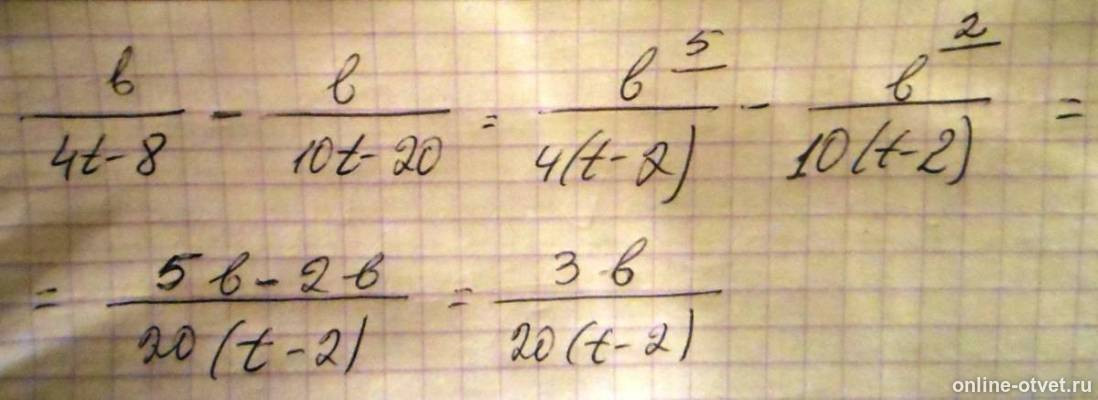 b/(4t-8) - b/(10t-20) = b^5/(4(t-2)) - b^2/(10(t-2)) =
= (5b-2b)/(20(t-2)) = 3b/(20(t-2))
online-otvet.ru